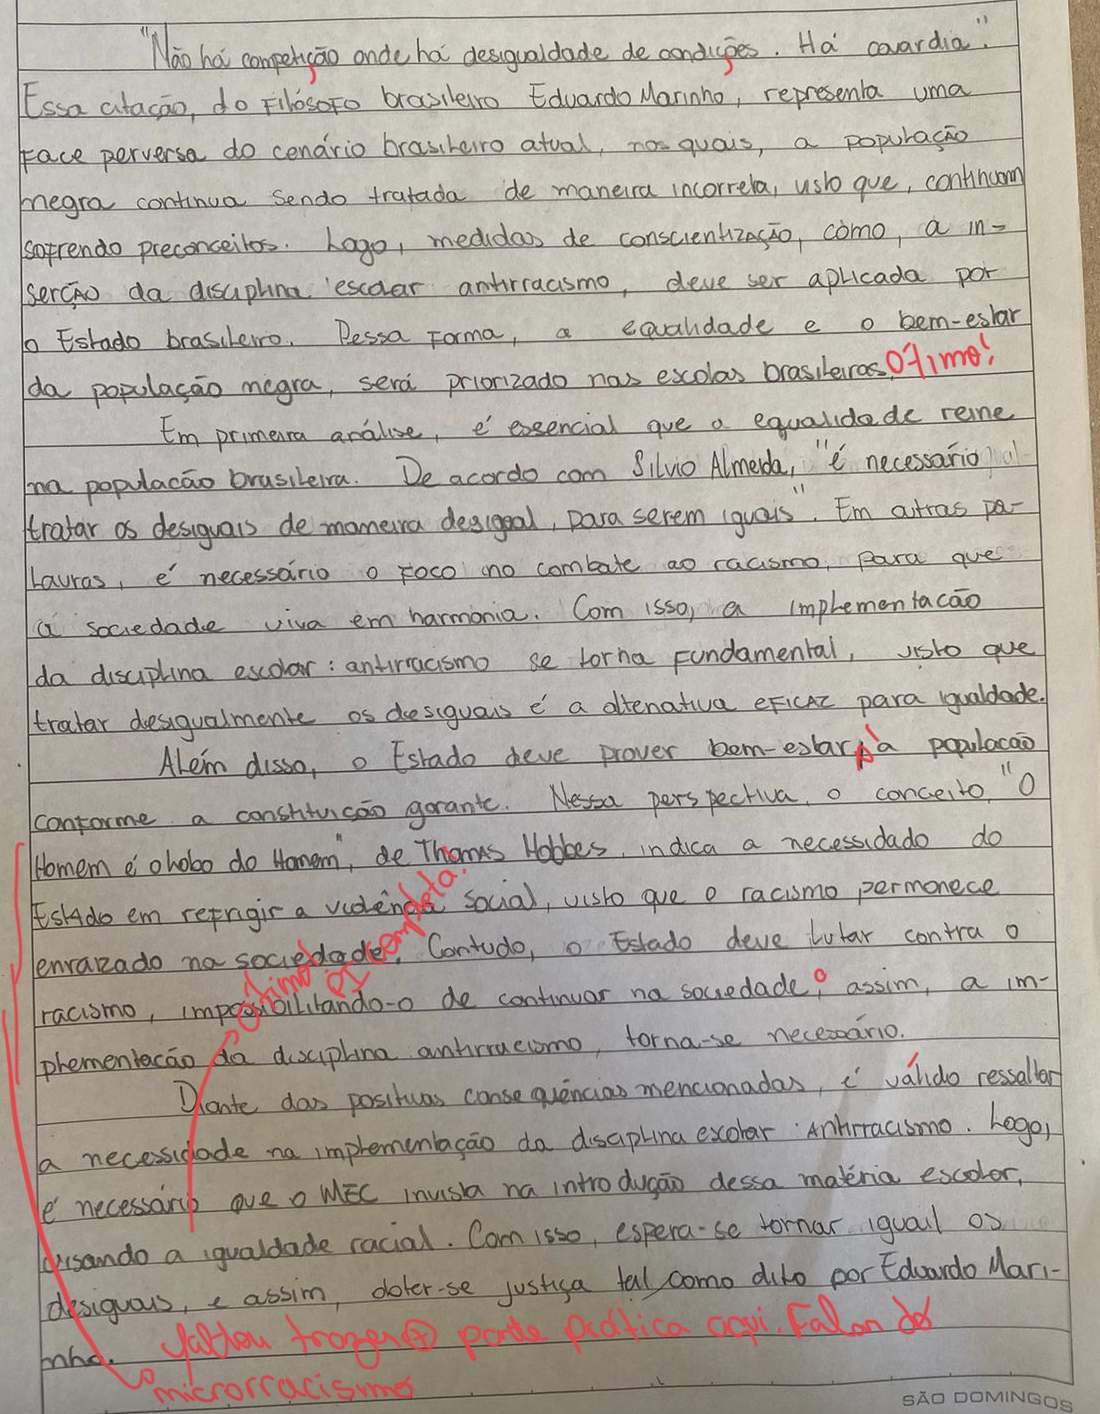 "Não há competição onde há desigualdade de condições. Há covardia".
Essa citação, do Filósofo brasileiro Eduardo Marinho, representa uma
Face perversa do cenário brasileiro atual, nos quais, a população
negra continua sendo tratada de maneira incorreta, visto que, continuam
sofrendo preconceitos. Logo, medidas de conscientização, como, a in-
serção da disciplina escolar antirracismo, deve ser aplicada por
o Estado brasileiro. Dessa Forma, a equalidade e o bem-estar
da população negra, será priorizado nas escolas brasileiras. Ótimo!
Em primeira análise, é essencial que a equalidade reine
na populacão brasileira. De acordo com Silvio Almeida, "é necessário
tratar os desiguais de maneira desigoal, para serem iguais". Em outras pa-
lavras, é necessário o Foco no combate ao racismo, para que
a sociedade viva em harmonia. Com isso, a implementacão
da disciplina escolar: antirracismo se torna Fundamental, visto que
tratar desigualmente os desiguais é a altenativa EFICAZ para igualdade.
Além disso, o Estado deve prover bem-estar à populacão
conforme a constituição garante. Nessa perspectiva, o conceito "O
Homem é o lobo do Homem", de Thomas Hobbes, indica a necessidado do
Estado em refrigir a violência social, visto que o racismo permanece
enraizado na sociedade. Contudo, o Estado deve lutar contra o
racismo, impossibilitando-o de continuar na sociedade, assim, a im-
plementacão da disciplina antirracismo, torna-se necessário.
Ótimo! PI completa!
Diante das positivas consequências mencionadas, é válido ressaltar
a necessidade na implementação da disciplina escolar: Antirracismo. Logo,
é necessário que o MEC invista na introdução dessa matéria escolar,
visando a igualdade racial. Com isso, espera-se tornar igual os
desiguais, e assim, obter-se justiça tal como dito por Eduardo Mari-
nho.
faltou trazer + parte prática aqui. Falar do
microrracismo
SÃO DOMINGOS